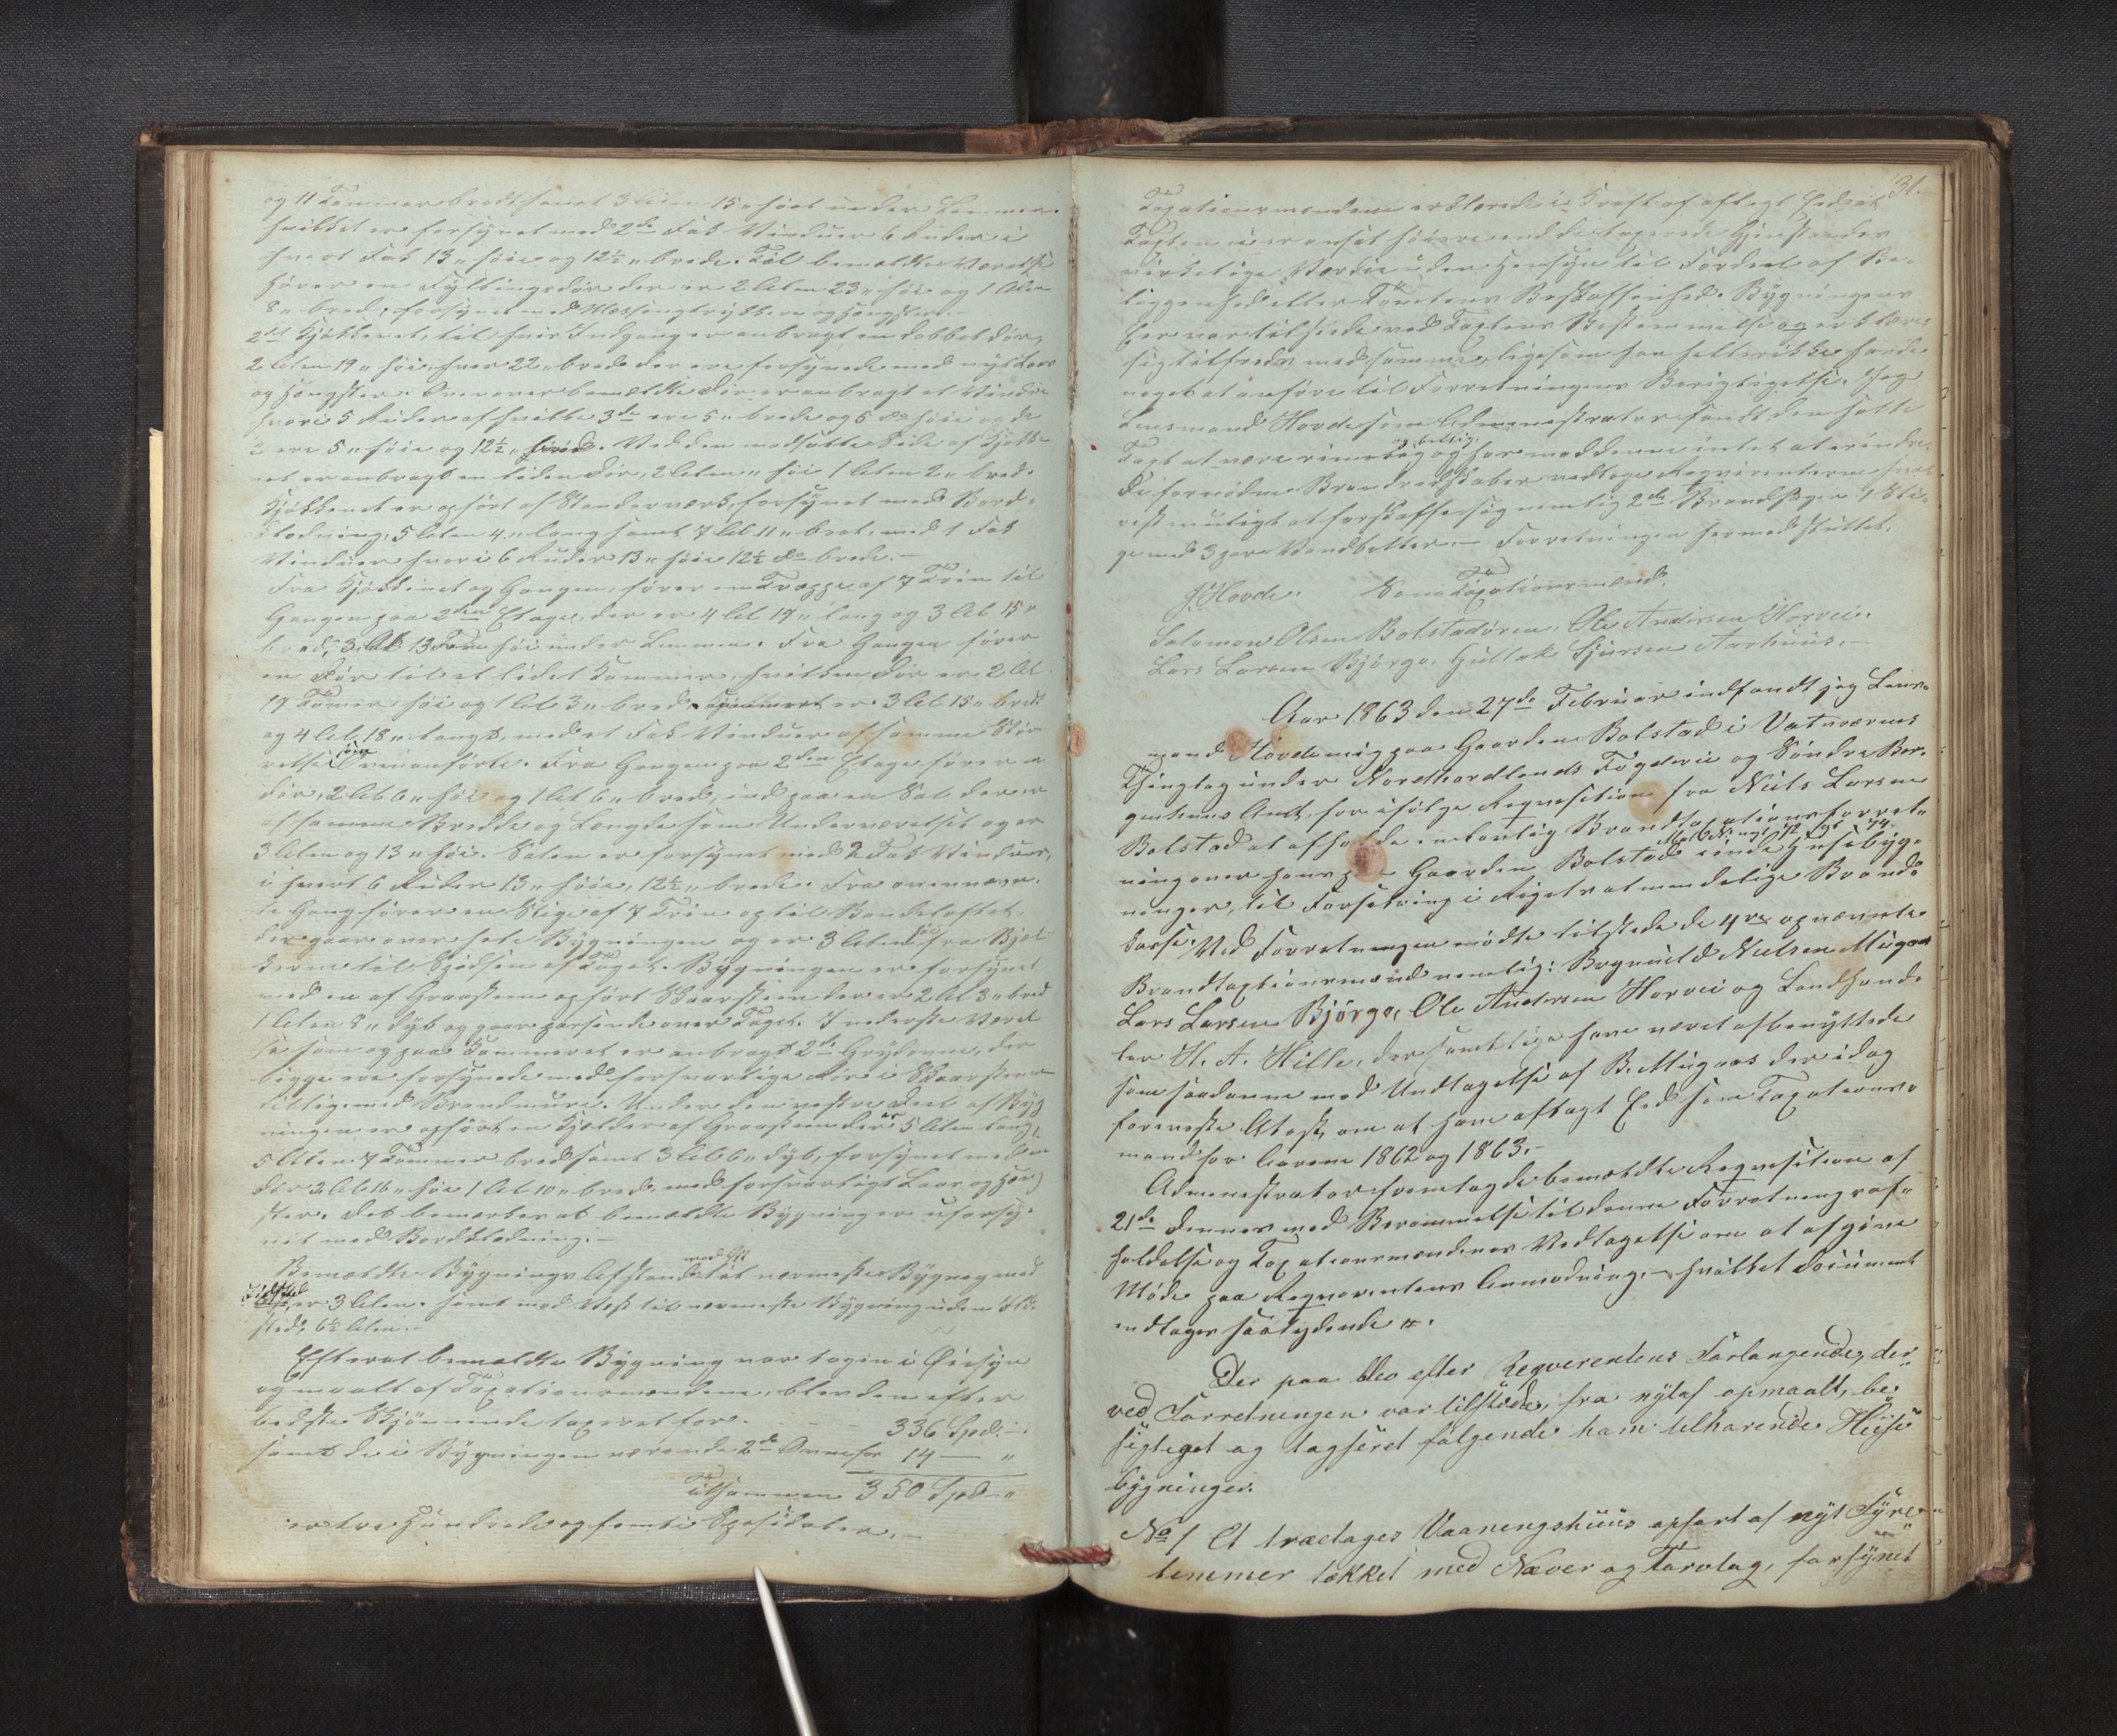 og 11 Tommer bredt samt 3 Alen 15 " høit under Lemmen.
hvilket er forsynet med 2de Fak Vinduer 6 Ruder i
hvert Fak 13 " høie og 12½ " brede. Til bemældte Værelse
hører en Fyldingsdør der er 2 Alen 23 " høi og 1 Alen
8 " bred, forsynet med Messingtrykkere og Hængsler.
2det Kjøkkenet, til hvis Indgang er anbragt en dobbelt dør,
2 Alen 19 " høi, hver 22 " bred der ere forsynede med nyt Laas
og Hængsler. Ovenover bemældte Dør er anbragt et Vindue
hvori 5 Ruder af hvilke 3de ere 5 " brede og 5 do høie og de
2 ere 5 " høie og 12½ " brede. Ved den modsatte Side af Kjøkke-
net er anbragt en liden Dør, 2 Alen " høi 1 Alen 2 " bred.
Kjøkkenet er opført af Stenderværk, forsynet med Bord-
klædning, 5 Alen 4 " lang samt 7 Al 11 " bret, med 1 Fak
Vinduer hvori 6 Ruder 13 " høie 12½ do brede.
Fra Kjøkkenet og Gangen, fører en Trappe af 7 Trin til
Gangen paa 2den Etage, der er 4 Al 19 " lang og 3 Al 15 "
bred, 3 Al 13 Tom høi under Lemmen. Fra Gangen fører
en Dør til et lidet Kammer, hvilken Dør er 2 Al
17 Tomer høi og 1 Al 3 " bred. Kammeret er 3 Al 15 " bredt
og 4 Al 18 " langt, med et Fak Vinduer af samme Stør-
relse som ovenanførte. Fra Gangen paa 2den Etage fører en
Dør, 2 Al 6 " høi og 1 Al 6 " bred, ind paa en Sal der er
af samme Bredde og Længde som Underværelset og er
3 Alen og 13 " høi. Salen er forsynet med 2 Fak Vinduer,
i hvert 6 Ruder 13 " høie, 12½ " brede. Fra ovennævn-
te Gang fører en Stige af 7 Trin op til Bondeloftet,
der gaar over hele Bygningen og er 3 Alen høi fra Bjæl-
kerne til Spidsen af Taget. Bygningen er forsynet
med en af Graasteen opført Skaarsteen der er 2 Al 3 " bred
1 Alen 8 " dyb og gaar passende over Taget. I nederste Værel
se som og paa Kammeret er anbragt 2de Grydovne, der
begge ere forsynede med forsvarlige Rør i Skaarstenen
tilligemed Brandmure. Under den vestre Deel af Byg
ningen er opført en Kjelder af Graasteen der er 5 Alen lang,
5 Alen 7 Tommer bred samt 3 Al 6 " dyb, forsynet med en
Dør 2 Al 16 " høi 1 Al 10 " bred, med forsvarligt Laas og Hæng
sler. Det bemærkes at bemældte Bygning er uforsy-
net med Bordklædning.
Bemældte Bygnings Afstand mod Øst til nærmeste Bygning med
Ildsted er 3 Alen. samt mod Vest til nærmeste Bygning uden Ild-
sted, 6½ Alen.
Efterat bemældte Bygning var tagen i Øiesyn
og maalt af Taxationsmændene, blev den efter
bedste Skjønnende taxeret for. 336 Spd. "
samt de i Bygningen værende 2de Ovne for 14 — "
Tilsammen 350 Spd "
er tre Hundrede og femti Spesidaler.
31.
Taxationsmændene erklærede i Kraft af aflagt Eed at
Taxten ei er ansat høiere end de taxerede Gjenstandes
virkelige Værdie uden Hensyn til Fordeel af Be-
liggenhed eller Tomtens Beskaffenhed. Bygningens
Eier var tilstede ved Taxtens Bestemmelse og erklære
sig tilfreds med samme, ligesom han hellerikke havde
noget at anføre til Forretningens Berigtigelse. Jeg
Lensmand Hovde som Administrator fandt den satte
Taxt at være rimelig og billig, og har moddenne intet at erindre
De fornødne Brandredskaber vedtoge Reqvirenterne hva
rest muligt at forskaffe sig nemlig 2de Brandhager 1 Sti-
ge med 3 par Vandbøtter. — Forretningen hermed sluttet.
J. Hovde. Som Taxationsmænd.
Salomon Olsen Bolstadøren, Ole Andersen Horvei.
Lars Larsen Bjørgo, Gullak Sjursen Aarhuus.
Aar 1863 den 27de Februar indfandt jeg Lens-
mand Hovde mig paa Gaarden Bolstad i Vatnværnes
Thinglag under Nordhordlands Fogderie og Søndre Ber-
genhuus Amt, for ifølge Reqvesition fra Niels Larsen
Bolstad at afholde en lovlig Brandtaxationsforret-
ning over hans paa Gaarden Bolstad Mat. No nyt 72 gl 74. eiende Huusebyg-
ninger, til Forsikring i Rigets almindelige Brand-
kasse. Ved Forretningen mødte tilstede de 4re opnævnte
Brandtaxtionsmænd nemlig: Brynild Nielsen Mugaas
Lars Larsen Bjørgo, Ole Andersen Horvei og Landhand-
ler H. A. Hille, der samtlige have været afbenyttede
som saadanne med Undtagelse af B. Mugaas der idag
foreviste Atest, om at have aflagt Eed som Taxations-
mand for Aarene 1862 og 1863. —
Administrator fremlagde bemældte Reqvesition af
21de dennes med Berammelse til denne Forretnings af-
holdelse og Taxationsmændenes Vedtagelse om at afgive
Møde paa Reqvirentens Anmodning, — hvilket Document
indtages saalydende #.
Der paa blev efter Reqverentens Forlangende, der
ved Forretningen var tilstede, fra nyt af opmaalt, be-
sigtiget og tagseret følgende ham tilhørende Huse
bygninger.
No 1 Et toetages Vaaningshuus opført af nyt Fyre-
temmer tækket med Næver og Tørvtag, forsynet